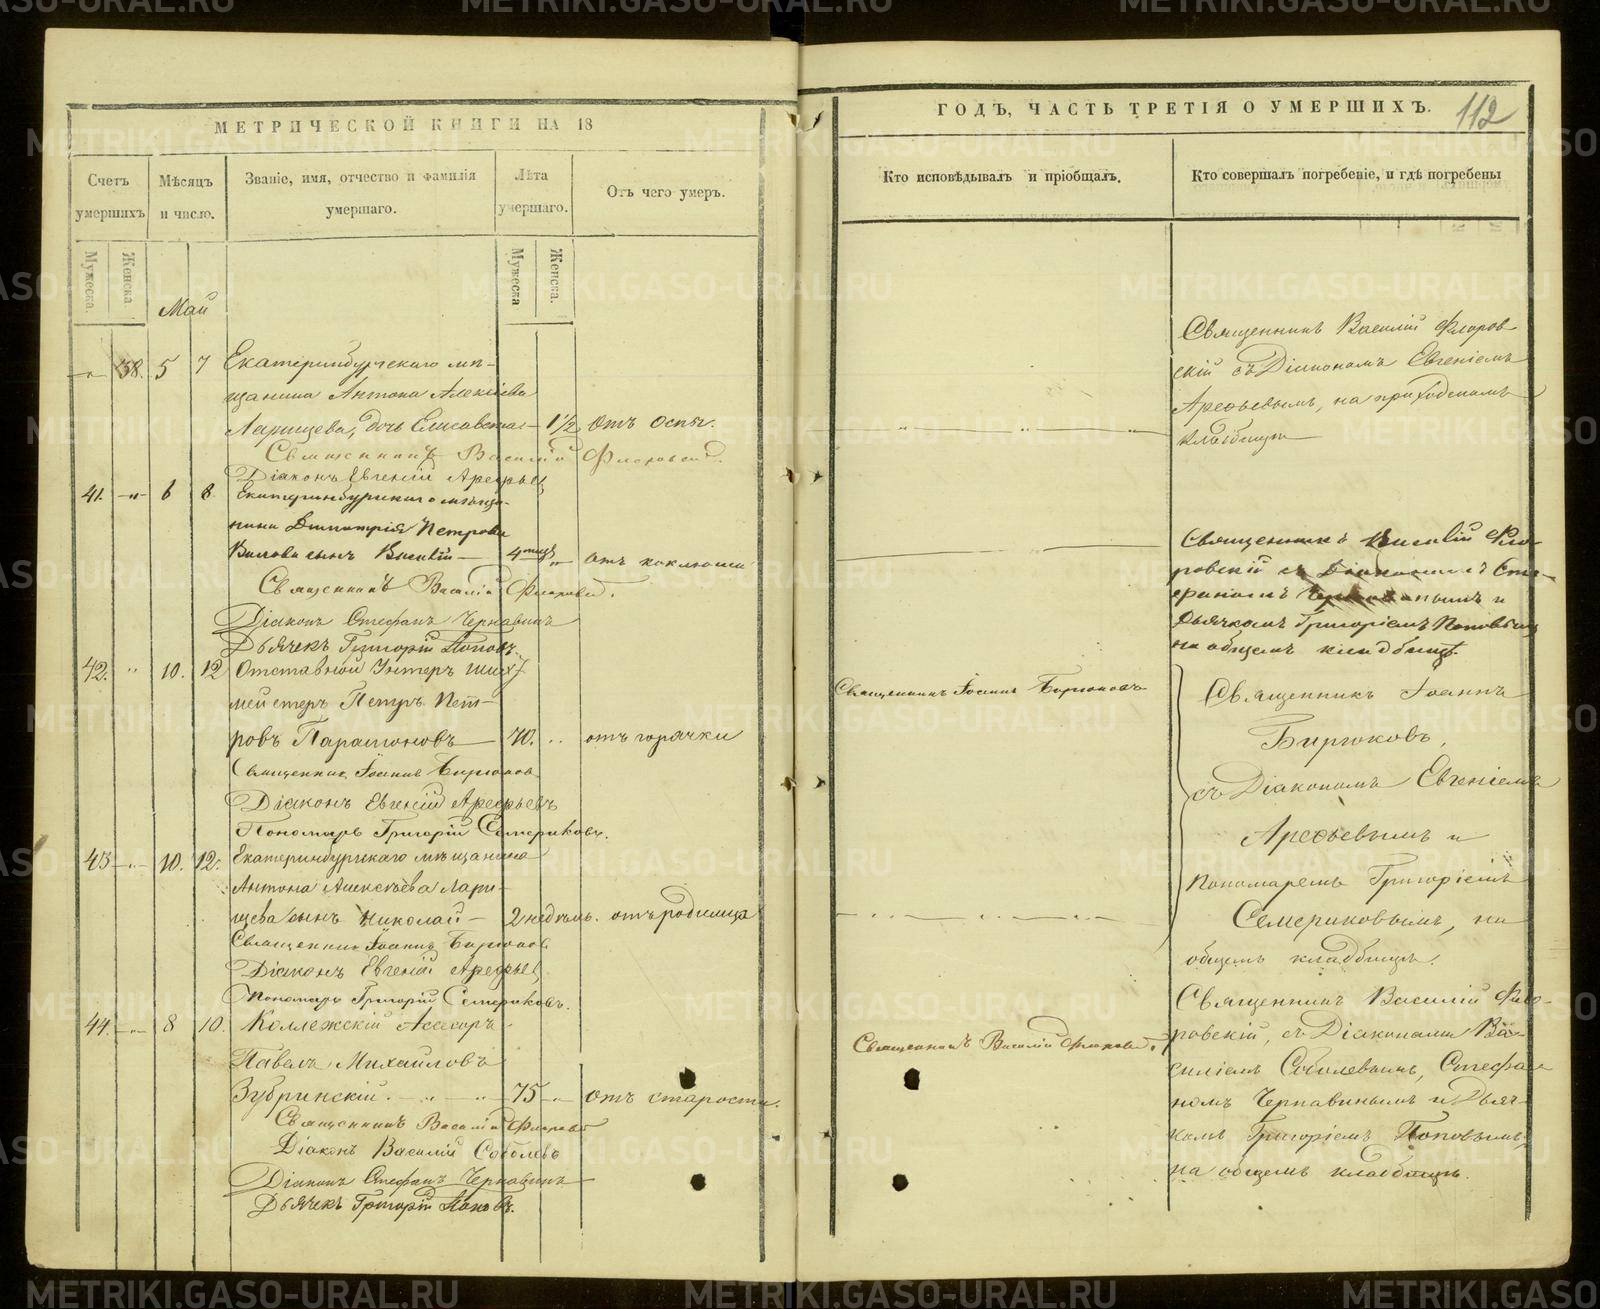 МЕТРИЧЕСКОЙ КНИГИ НА 18
Счетъ умершихъ
Мѣсяцъ и число.
Званіе, имя, отчество и фамилія умершаго.
Лѣта умершаго.
Отъ чего умеръ.
Мужеска. Женска.
Мужеска Женска.
Май
38. 5 7 Екатеринбургскаго мѣ-
щанина Антона Алексѣева
Ларищева, дочь Елисавета 1½ Отъ оспы.
Священникъ Василій Флоровскій.
Діаконъ Евгеній Арефьевъ
41. 6 8. Екатеринбургскаго мѣща-
нина Димитрія Петрова
сынъ Василій 4 мѣц. отъ коклюша
Священникъ Василій Флоровскій.
Діаконъ Стефанъ Чернавинъ
Дьячекъ Григорій Поповъ.
42. 10. 12 Отставной Унтеръ Шихт-
мейстеръ Петръ Пет-
ровъ Парамоновъ 70. отъ горячки
Священникъ Іоаннъ Бирюковъ
Діаконъ Евгеній Арефьевъ
Пономарь Григорій Семериковъ.
43 10. 12. Екатеринбургскаго мѣщанина
Антона Алексѣева Лари-
щева сынъ Николай 2 недѣль. отъ родимца
Священникъ Іоаннъ Бирюковъ
Діаконъ Евгеній Арефьевъ
Пономарь Григорій Семериковъ.
44. 8 10. Коллежскій Асесоръ
Павелъ Михайловъ
Зубринскій. 75 отъ старости.
Священникъ Василій Флоровскій
Діаконъ Василій Соболевъ
Діаконъ Стефанъ Чернавинъ
Дьячекъ Григорій Поповъ.
ГОДЪ, ЧАСТЬ ТРЕТІЯ О УМЕРШИХЪ.
112
Кто исповѣдывалъ и пріобщалъ.
Кто совершалъ погребеніе, и гдѣ погребены
Священникъ Василій Флоров-
скій съ Діакономъ Евгеніемъ
Арефьевымъ, на приходскомъ
кладбищѣ
Священникъ Василій Фло-
ровскій съ Діакономъ Сте-
фаномъ Чернавинымъ и
Дьячкомъ Григоріемъ Поповымъ
на общемъ кладбищѣ.
Священникъ Іоаннъ Бирюковъ
Священникъ Іоаннъ
Бирюковъ,
съ Діакономъ Евгеніемъ
Арефьевымъ и
Пономаремъ Григоріемъ
Семериковымъ, на
общемъ кладбищѣ.
Священникъ Василій Флоровскій.
Священникъ Василій Фло-
ровскій, съ Діаконами Ва-
силіемъ Соболевымъ, Стефа-
номъ Чернавинымъ и Дьяч-
комъ Григоріемъ Поповымъ,
на общемъ кладбищѣ.
METRIKI.GASO-URAL.RU